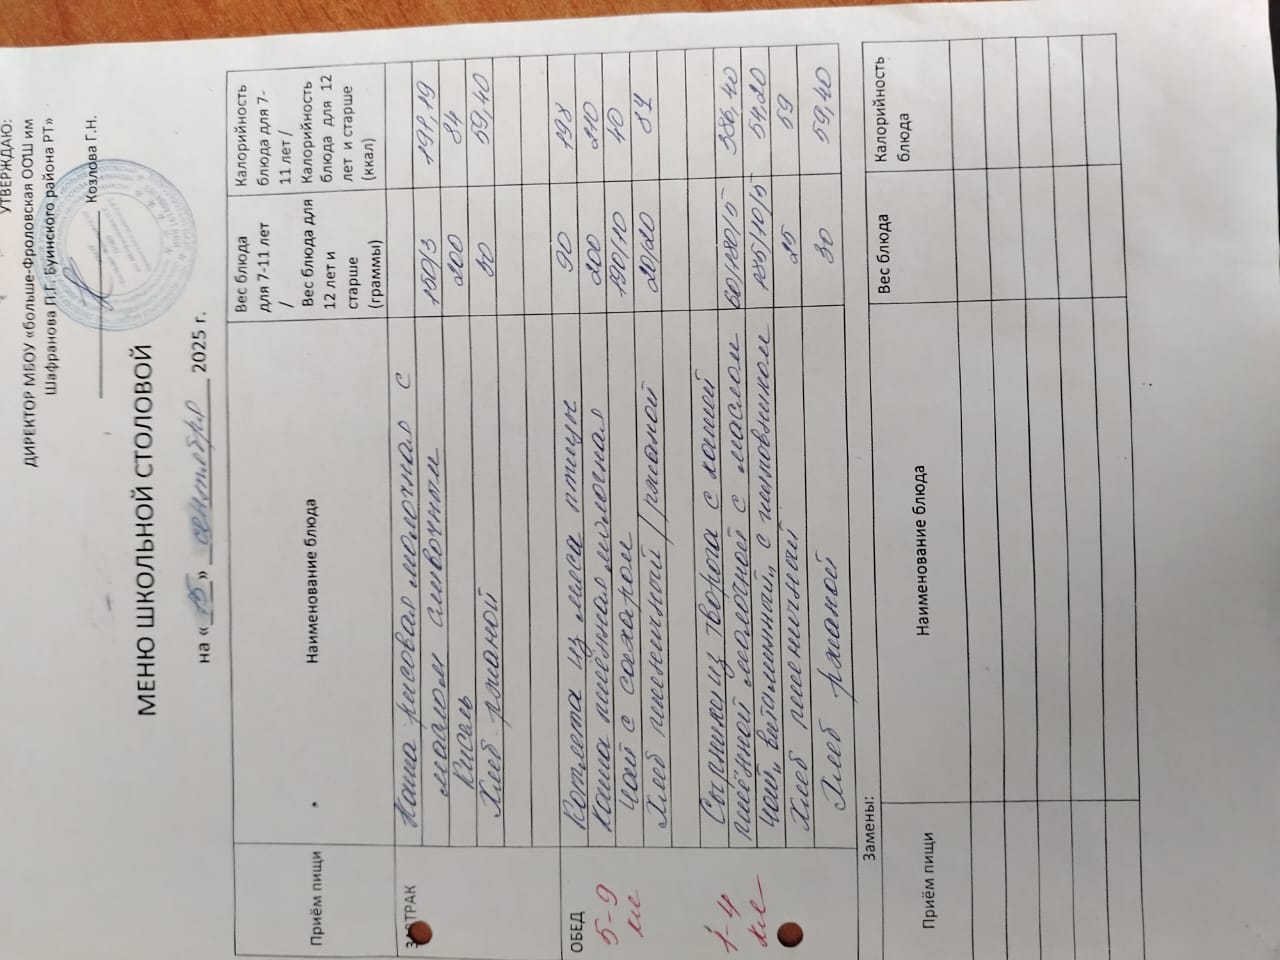 УТВЕРЖДАЮ:
ДИРЕКТОР МБОУ «больше-Фроловская ООШ им
Шафранова П.Г. Буинского района РТ»
Козлова Г.Н.
МЕНЮ ШКОЛЬНОЙ СТОЛОВОЙ
на «15» сентября 2025 г.
Приём пищи Наименование блюда Вес блюда для 7-11 лет / Вес блюда для 12 лет и старше (граммы) Калорийность блюда для 7-11 лет / Калорийность блюда для 12 лет и старше (ккал)
ЗАВТРАК
Каша рисовая молочная с
маслом сливочным 150/3 191,19
Кисель 200 84
Хлеб ржаной 30 59,40
ОБЕД
5-9 кл
Котлета из мяса птицы 90 198
Каша пшённая молочная 200 210
Чай с сахаром 190/10 40
Хлеб пшеничный / ржаной 20/20 87
1-4 кл
Сырники из творога с кашей
пшённой молочной с маслом 60/180/5 386,40
Чай „витаминный„ с шиповником 185/10/5 54,20
Хлеб пшеничный 25 59
Хлеб ржаной 30 59,40
Замены:
Приём пищи Наименование блюда Вес блюда Калорийность блюда